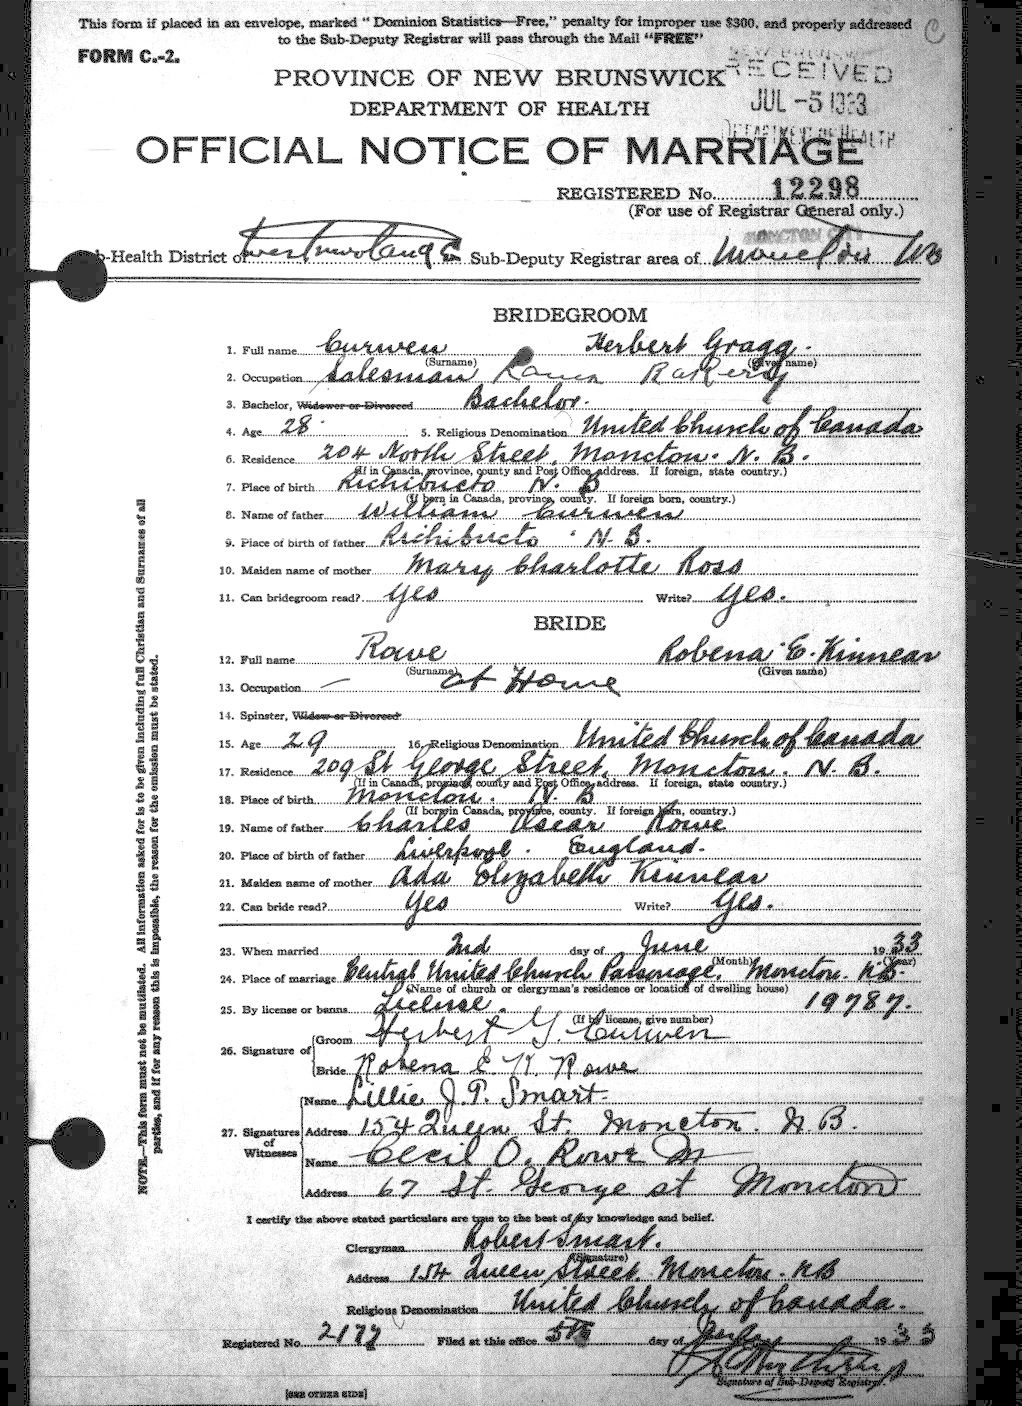 This form if placed in an envelope, marked "Dominion Statistics—Free," penalty for improper use $300, and properly addressed
to the Sub-Deputy Registrar will pass through the Mail "FREE"
FORM C.-2.
PROVINCE OF NEW BRUNSWICK
RECEIVED
DEPARTMENT OF HEALTH
JUL -5 1933
DEPARTMENT OF HEALTH
OFFICIAL NOTICE OF MARRIAGE
REGISTERED No. 12298
(For use of Registrar General only.)
MONCTON CITY
b-Health District of Westmorland Sub-Deputy Registrar area of Moncton NB
BRIDEGROOM
1. Full name Curwen Herbert Gragg.
(Surname) (Given name)
2. Occupation Salesman Bakery
3. Bachelor, Widower or Divorced Bachelor.
4. Age 28 5. Religious Denomination United Church of Canada
6. Residence 204 North Street, Moncton. N. B.
(If in Canada, province, county and Post Office address. If foreign, state country.)
7. Place of birth Richibucto N. B
(If born in Canada, province, county. If foreign born, country.)
8. Name of father William Curwen
9. Place of birth of father Richibucto N. B.
10. Maiden name of mother Mary Charlotte Ross
11. Can bridegroom read? Yes Write? Yes.
BRIDE
12. Full name Rowe Robena E. Kinnear
(Surname) (Given name)
13. Occupation — At Home
14. Spinster, Widow or Divorced
15. Age 29 16. Religious Denomination United Church of Canada
17. Residence 209 St George Street, Moncton. N. B.
(If in Canada, province, county and Post Office address. If foreign, state country.)
18. Place of birth Moncton. N. B
(If born in Canada, province, county. If foreign born, country.)
19. Name of father Charles Oscar Rowe
20. Place of birth of father Liverpool. England.
21. Maiden name of mother Ada Elizabeth Kinnear
22. Can bride read? Yes Write? Yes.
23. When married 2nd day of June 1933
(Month) (Year)
24. Place of marriage Central United Church Parsonage, Moncton. N.B.
(Name of church or clergyman's residence or location of dwelling house)
25. By license or banns License. 19787.
(If by license, give number)
26. Signature of Groom Herbert G. Curwen
Bride Robena E. K. Rowe
27. Signatures of Witnesses Name Lillie J. P. Smart
Address 154 Queen St. Moncton. N. B.
Name Cecil O. Rowe
Address 67 St. George st Moncton
I certify the above stated particulars are true to the best of my knowledge and belief.
Clergyman Robert Smart.
(Signature)
Address 154 Queen Street, Moncton. NB
Religious Denomination United Church of Canada.
Registered No. 2177 Filed at this office 5th day of July 1933
Signature of Sub-Deputy Registrar
[SEE OTHER SIDE]
NOTE.—This form must not be mutilated. All information asked for is to be given including full Christian and Surnames of all
parties, and if for any reason this is impossible, the reason for the omission must be stated.